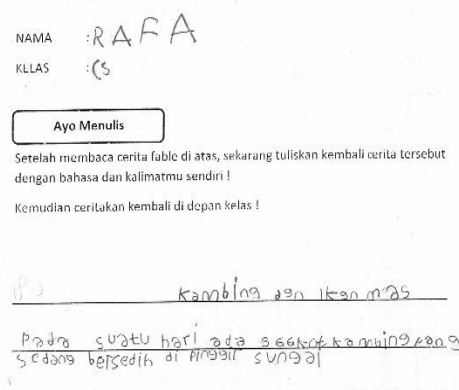 NAMA : RAFA
KELAS : (5
Ayo Menulis
Setelah membaca cerita fable di atas, sekarang tuliskan kembali cerita tersebut
dengan bahasa dan kalimatmu sendiri !
Kemudian ceritakan kembali di depan kelas !
Kambing dan Ikan mas
Pada suatu hari ada seekor kambing yang
sedang bersedih di pinggir sungai